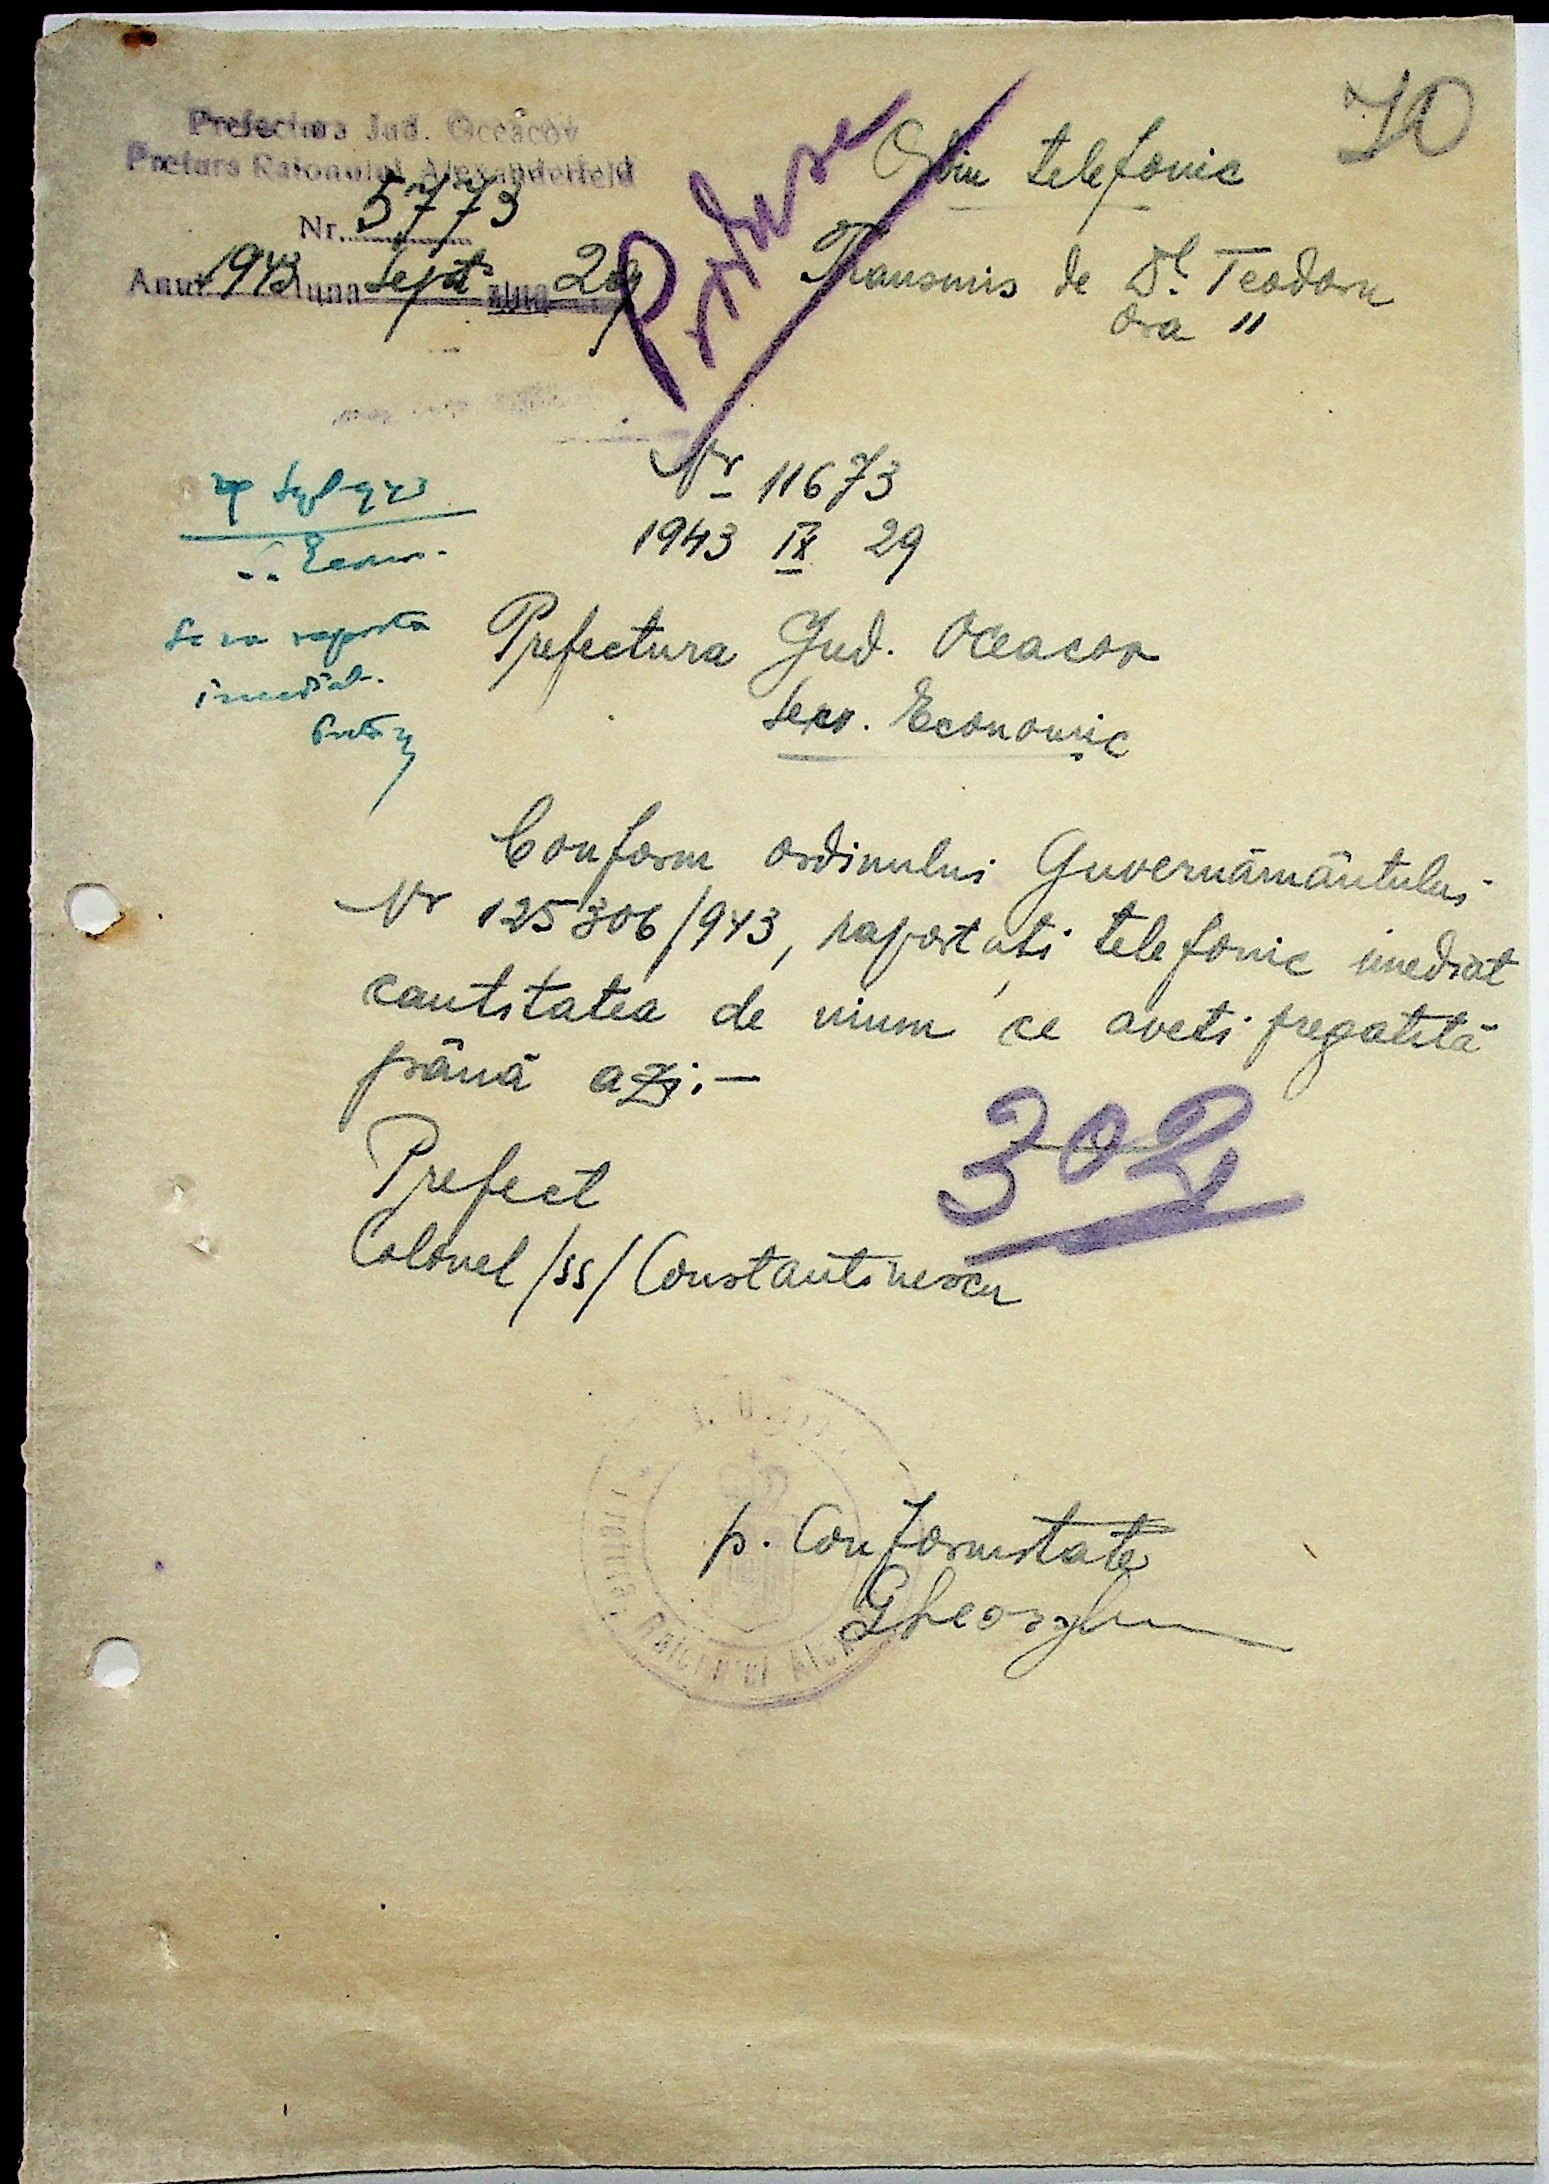 70
Prefectura Jud. Oceacov
Pretura Raionului Alexanderfeld
Nr. 5773
Anul 1943 luna Sept ziua 29
Ordin telefonic
Transmis de Dl. Teodoru
Ora 11
Nr 11673
1943 IX 29
Prefectura Jud. Oceacov
Serv. Economic
Se va raporta
imediat.
Conform ordinului Guvernământului
Nr 125306/943, raportati telefonic imediat
cantitatea de vinum ce aveti pregatită
până azi.—
302
Prefect
Colonel /ss/ Constantinescu
p. Conformitate
Gheorghiu
Raionului